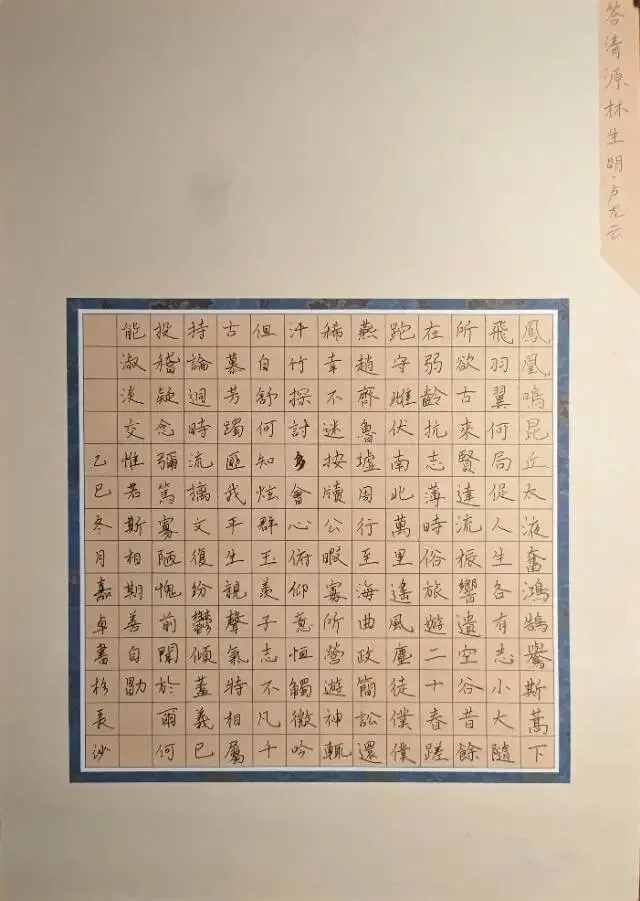 答清源林生明·卢龙云
鳳凰鳴昆丘太液奮鴻鵠鸒斯蒿下
飛羽翼何局促人生各有志小大隨
所欲古來賢達流振響遺空谷昔餘
在弱齡抗志薄時俗旅遊二十春蹉
跎守雌伏南北萬里遙風塵徒僕僕
燕趙齊魯墟周行至海曲政簡訟還
稀幸不迷按牘公暇寡所營遊神輒
汗竹探討多會心俯仰意恒觸微吟
但自舒何知炫群玉羨子志不凡千
古慕芳躅匪我平生親聲氣特相屬
持論迥時流摛文復紛鬱傾蓋義已
投稽疑念彌篤寡陋愧前聞於爾何
能淑淡交惟若斯相期善自勖
乙巳冬月嘉卓書於長沙